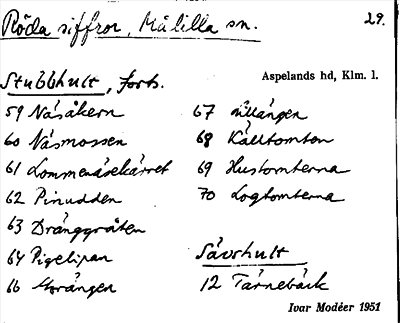 Röda siffror, Målilla sn.
29.
Stubbhult, forts.
Aspelands hd, Klm. l.
59 Näsåkern
60 Näsmossen
61 Lommenäsekärret
62 Pinudden
63 Dränggråten
64 Pigelipan
66 Storängen
67 Lillängen
68 Källtomten
69 Hustomterna
70 Logtomterna
Sävshult
12 Tärnebäck
Ivar Modéer 1951